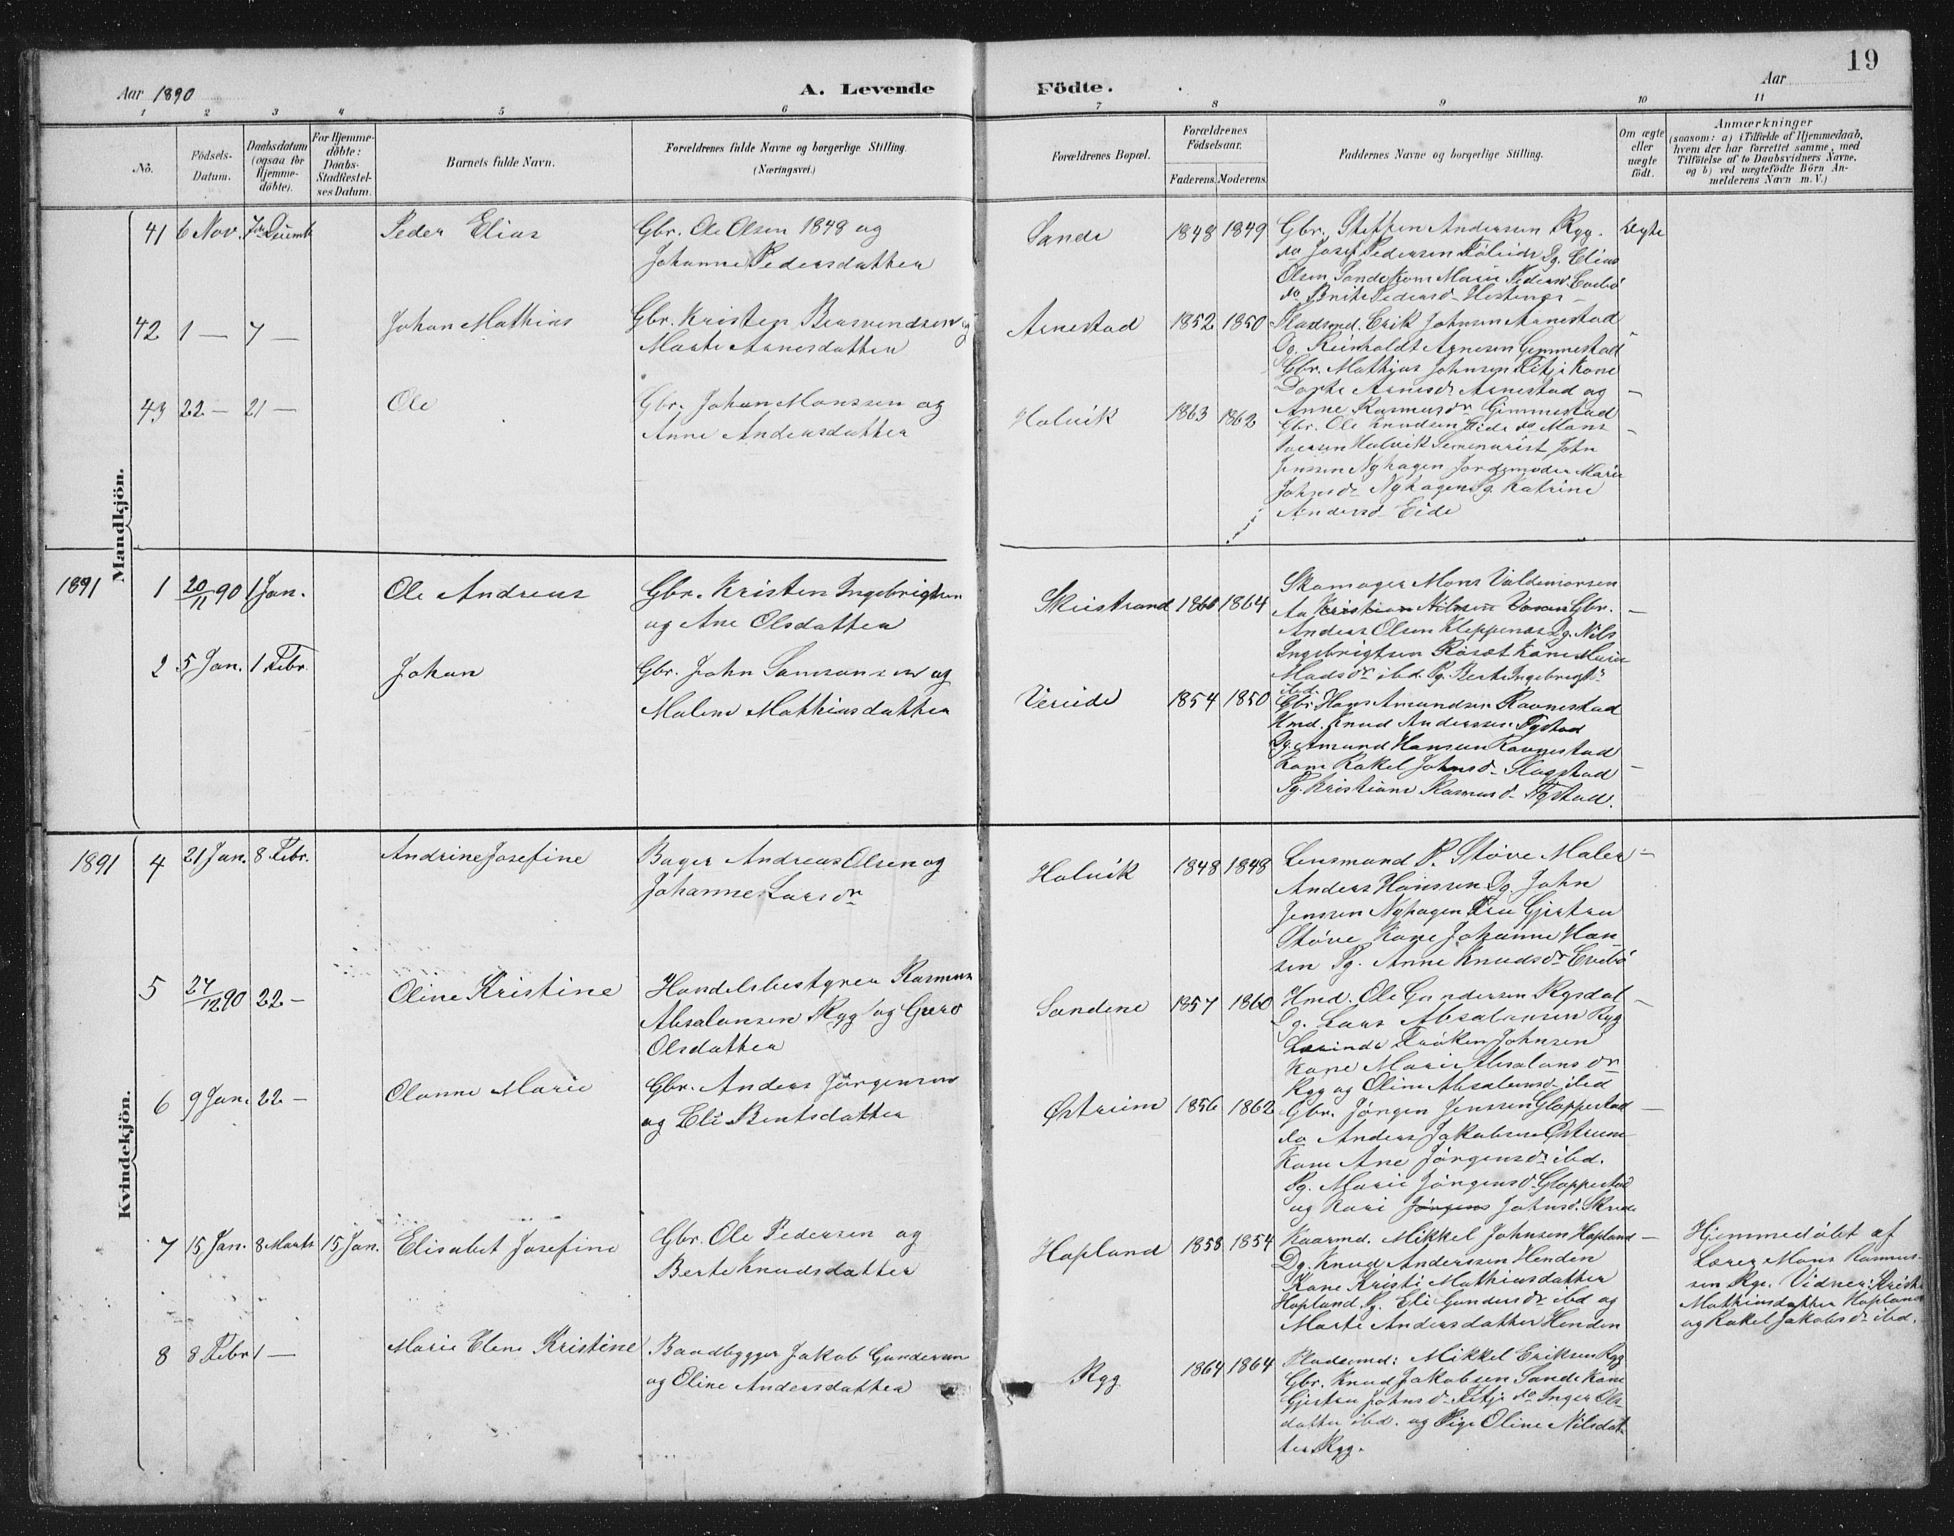 Aar 1890
A. Levende Födte.
Aar
19
1 2 3 4 5 6 7 8 9 10 11
No.
Födsels-Datum.
Daabsdatum (ogsaa for Hjemme-döbte).
For Hjemme-döbte: Daabs-Stadfæstel-ses Datum.
Barnets fulde Navn.
Forældrenes fulde Navne og borgerlige Stilling. (Næringsvei.)
Forældrenes Bopæl.
Forældrenes Födselsaar.
Faderens. Moderens.
Faddernes Navne og borgerlige Stilling.
Om ægte eller uægte födt.
Anmærkninger
(saasom: a) i Tilfælde af Hjemmedaab,
hvem der har forrettet samme, med
Tilföielse af to Daabsvidners Navne,
og b) ved uægtefödte Börn An-
melderens Navn m. V.)
Mandkjön.
41 6 Nov. Peder Elias
Gbr. Ole Olsen 1848 og
Johanne Pedersdatter
Sande 1848 1849
Gbr. Steffen Andersen Ryg.
do Josef Pedersen Pg. Elias
Olsen Sande Kone Marie Pedersd. Evebö
do Brite Pedersd. Hestenes
Ægte
42 1 — 7 — Johan Mathias
Gbr. Kristen Bersvendsen og
Marte Arnesdatter
Arnestad 1852 1850
Pladsmd. Erik Johnsen Arnestad
Pg. Reinholdt Arnesen Gimmestad
Gbr. Mathias Johnsen Fitje Kone
Dorte Arnesdr Arnestad og
Anne Rasmusdr Gimmestad
43 22 — 21 — Ole
Gbr. Johan Monssen og
Anne Andersdatter
Holvik 1863 1862
Gbr. Ole Knudsen Eide do Mons
Iversen Holvik Seminarist John
Jenssen Nyhagen Jordemoder Marie
Johnsdr Nyhagen Pg. Katrine
Andersd. Eide
1891
1 20/11 90 1 Jan. Ole Andreas
Gbr. Kristen Ingebrigtsen
og Ane Olsdatter
Skeistrand 1860 1864
Skomager Mons Valdemarsen
Aa Kristian Nilssen Gbr.
Anders Olsen Kleppenes Pg. Nils
Ingebrigtsen Röset Kone Marie
Madsdr ibd. Pg. Berte Ingebrigtsd
ibd.
2 5 Jan. 1 Febr. Johan
Gbr. John Samsonsen og
Malene Mathiasdatter
Vereide 1854 1850
Gbr. Hans Amundsen Ravnestad
Hmd. Knud Anderssen Tystad
Pg. Amund Hansen Ravnestad
Kone Rakel Johnsd. Slagstad
Pg. Kristiane Rasmusd. Tystad.
Kvindekjön.
1891
4 21 Jan. 8 Febr. Andrine Josefine
Bager Andreas Olsen og
Johanne Larsdr
Holvik 1848 1848
Lensmand P. Støve Maler
Anders Hanssen Pg. John
Jenssen Nyhagen Fru Gjertru
Støve Kone Johanne Han-
sen Pg. Anne Knudsdr Evebö
5 27/12 90 22 — Oline Kristine
Handelsbestyrer Rasmus
Absalonsen Ryg og Guro
Olsdatter
Sandene 1857 1860
Hmd. Ole Gundersen Rygsdal
Pg. Lars Absalonsen Ryg
Lærinde Frøken Johnsen
Kone Marie Absalonsdr
Ryg og Oline Absalonsd. ibd
6 9 Jan. 22 — Olanne Marie
Gbr. Anders Jörgensen
og Eli Bentsdatter
Østrum 1856 1862
Gbr. Jörgen Jenssen Gloppestad
do Anders Jakobsen Østrum
Kone Ane Jörgensdr ibd.
Pg. Marie Jörgensd. Gloppestad
og Kari Jörgens Johnsd.
7 15 Jan. 8 Marts 15 Jan. Elisabet Josefine
Gbr. Ole Pedersen og
Berte Knudsdatter
Hopland 1858 1854
Kaarmd. Mikkel Johnsen Hopland
Pg. Knud Anderssen Henden
Kone Kristi Mathiasdatter
Hopland. Pg. Eli Gundersdr ibd og
Marte Andersdatter Henden
Hjemmedøbt af
Lærer Mons Rasmus-
sen Rye. Vidner: Kristi
Mathiasdatter Hopland
og Rakel Jakobsdr ibd.
8 8 Febr 1 — Marie Elene Kristine
Baadbygger Jakob Gundersen
og Oline Andersdatter
Ryg 1864 1864
Pladsmd: Mikkel Eriksen Ryg
Gbr. Knud Jakobsen Sande Kone
Gjertru Johnsd. Fitje do Inger Ols-
datter ibd. og Pige Oline Nilsdat-
ter Ryg.